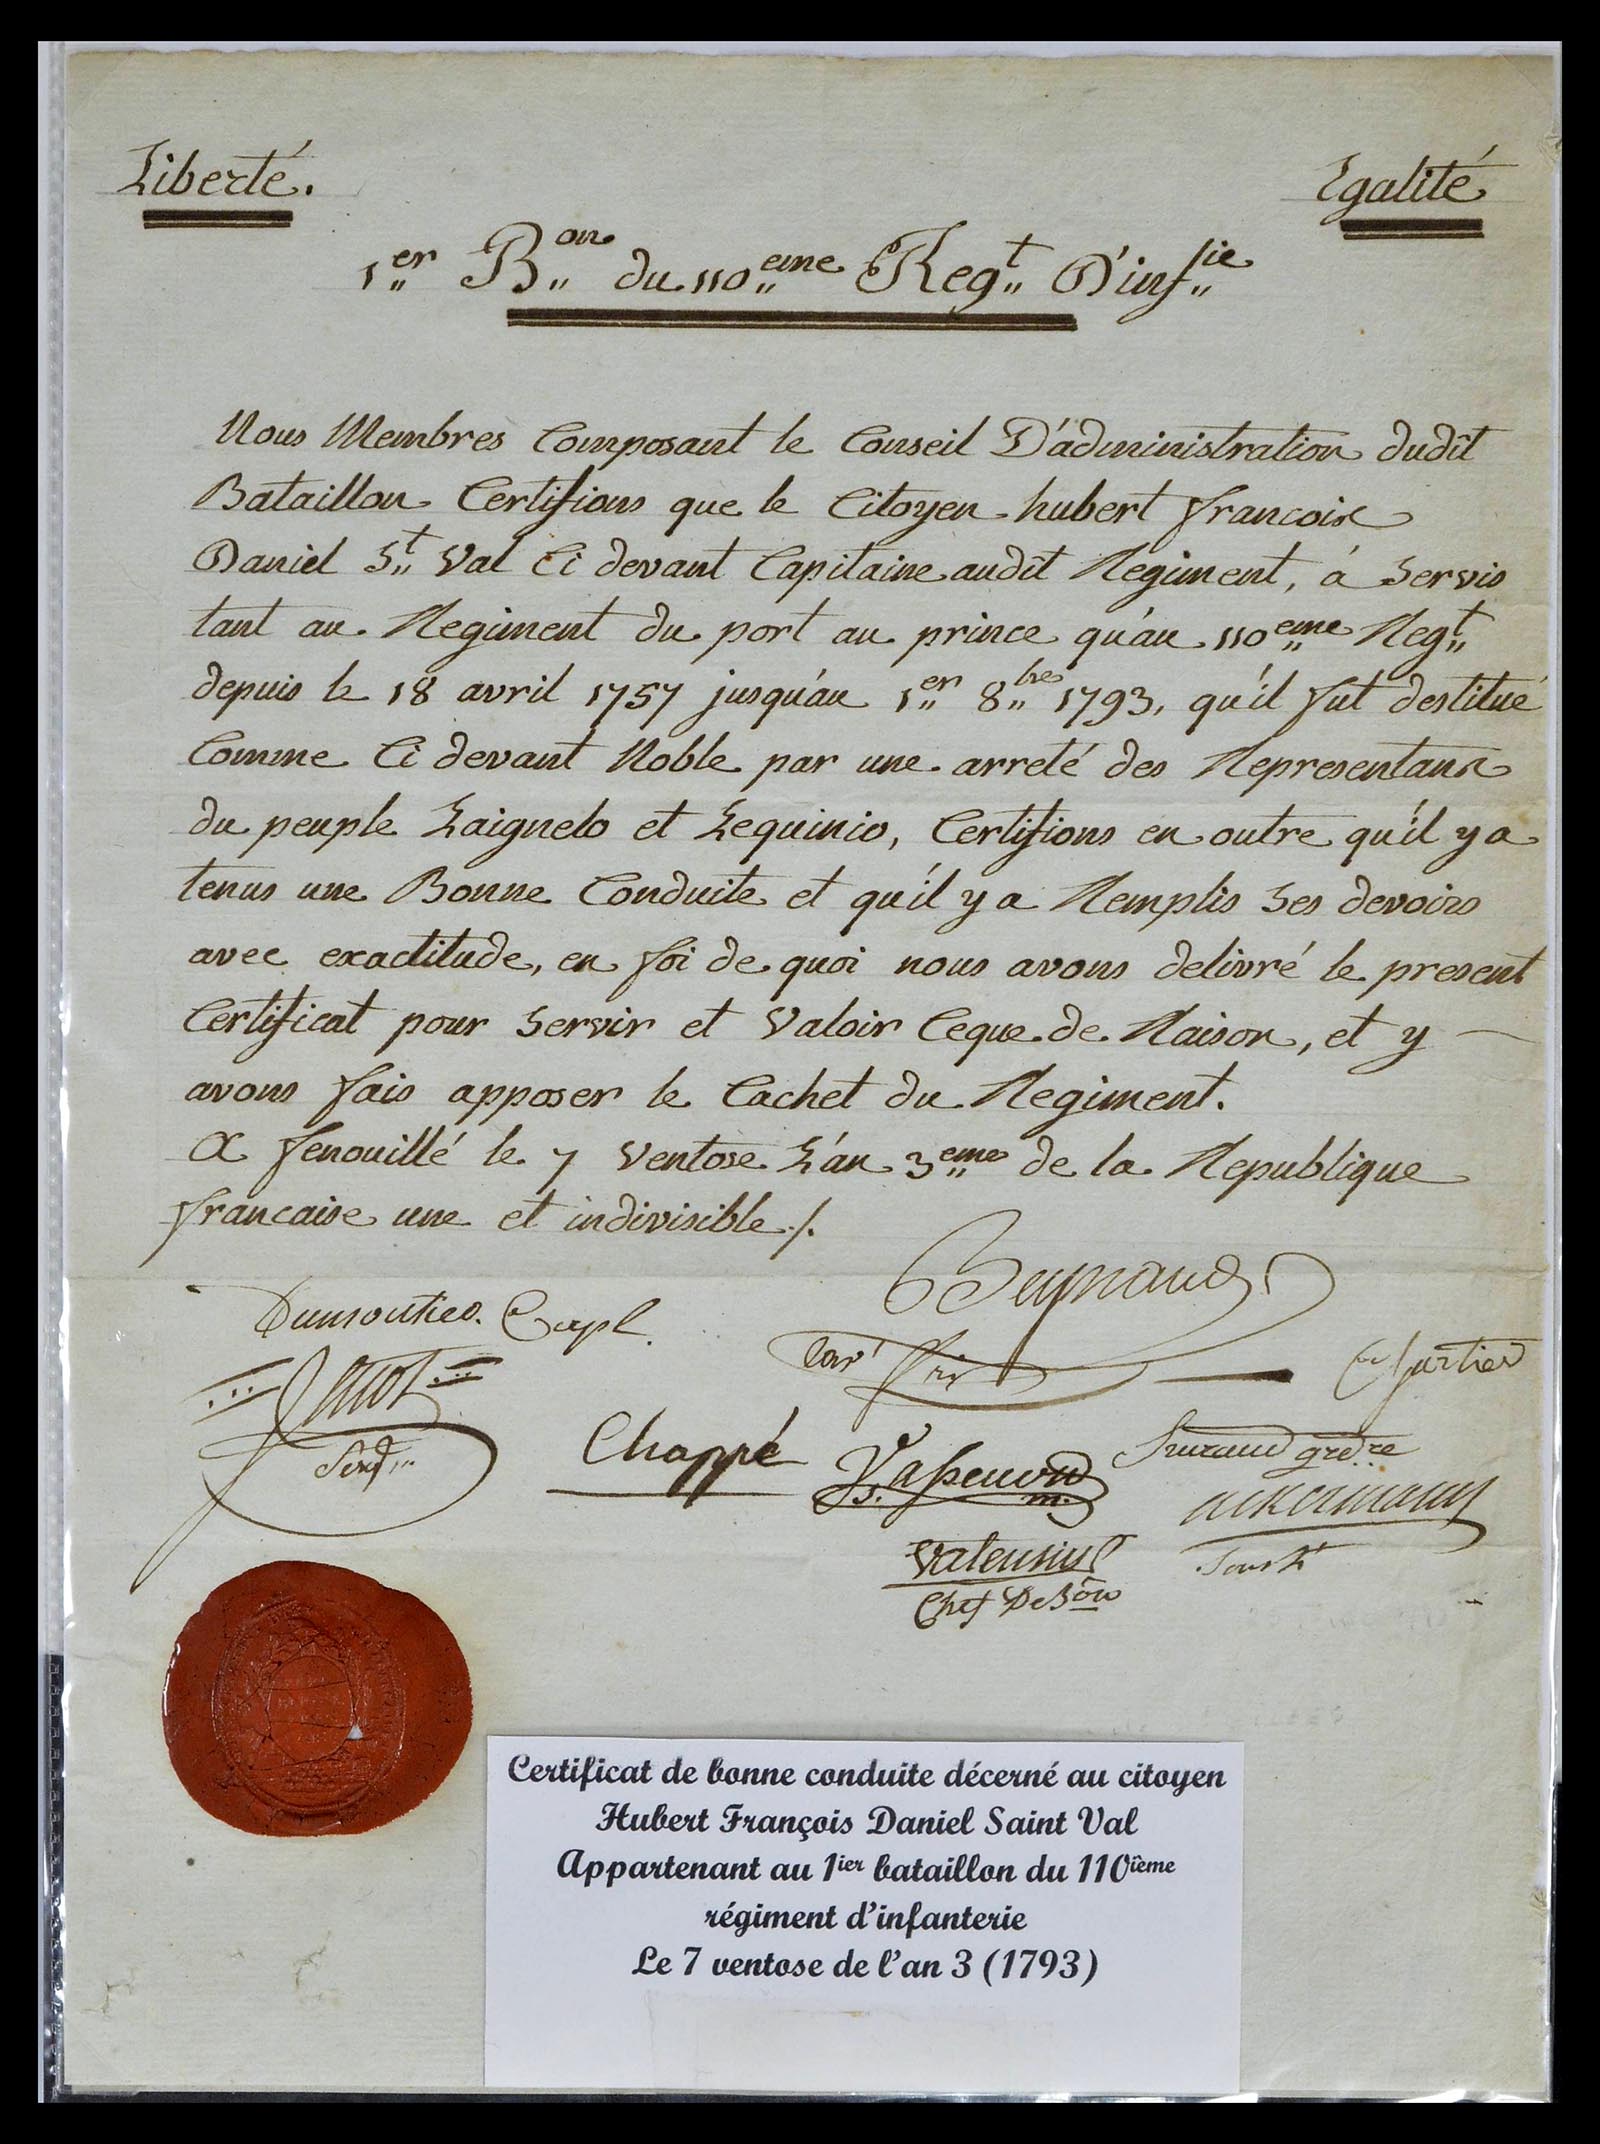 Liberté. Egalité
1er Bon du 110eme Regt D'infie
Nous Membres Composant le Conseil D'administration dudit
Bataillon Certifions que le Citoyen hubert francois
Daniel St Val Ci devant Capitaine audit Regiment, á Servis
tant au Regiment du port au prince qu'au 110eme Regt
depuis le 18 avril 1757 jusqu'au 1er 8bre 1793, qu'il fut destitué
Comme Ci devant Noble par une arreté des Representans
du peuple Laignelo et Lequinio, Certifions en outre qu'il y a
tenus une Bonne Conduite et qu'il y a Remplis Ses devoirs
avec exactitude, en foi de quoi nous avons delivré le present
Certificat pour Servir et Valoir Ceque de Raison, et y
avons fais apposer le Cachet du Regiment.
A fenouillé le 7 Ventose L'an 3eme de la Republique
francaise une et indivisible ./.
Dumoutier. Capl.
Chappé
ackermann
Valensin
Chef De Bon
Certificat de bonne conduite décerné au citoyen
Hubert François Daniel Saint Val
Appartenant au 1ier bataillon du 110ième
régiment d'infanterie
Le 7 ventose de l'an 3 (1793)